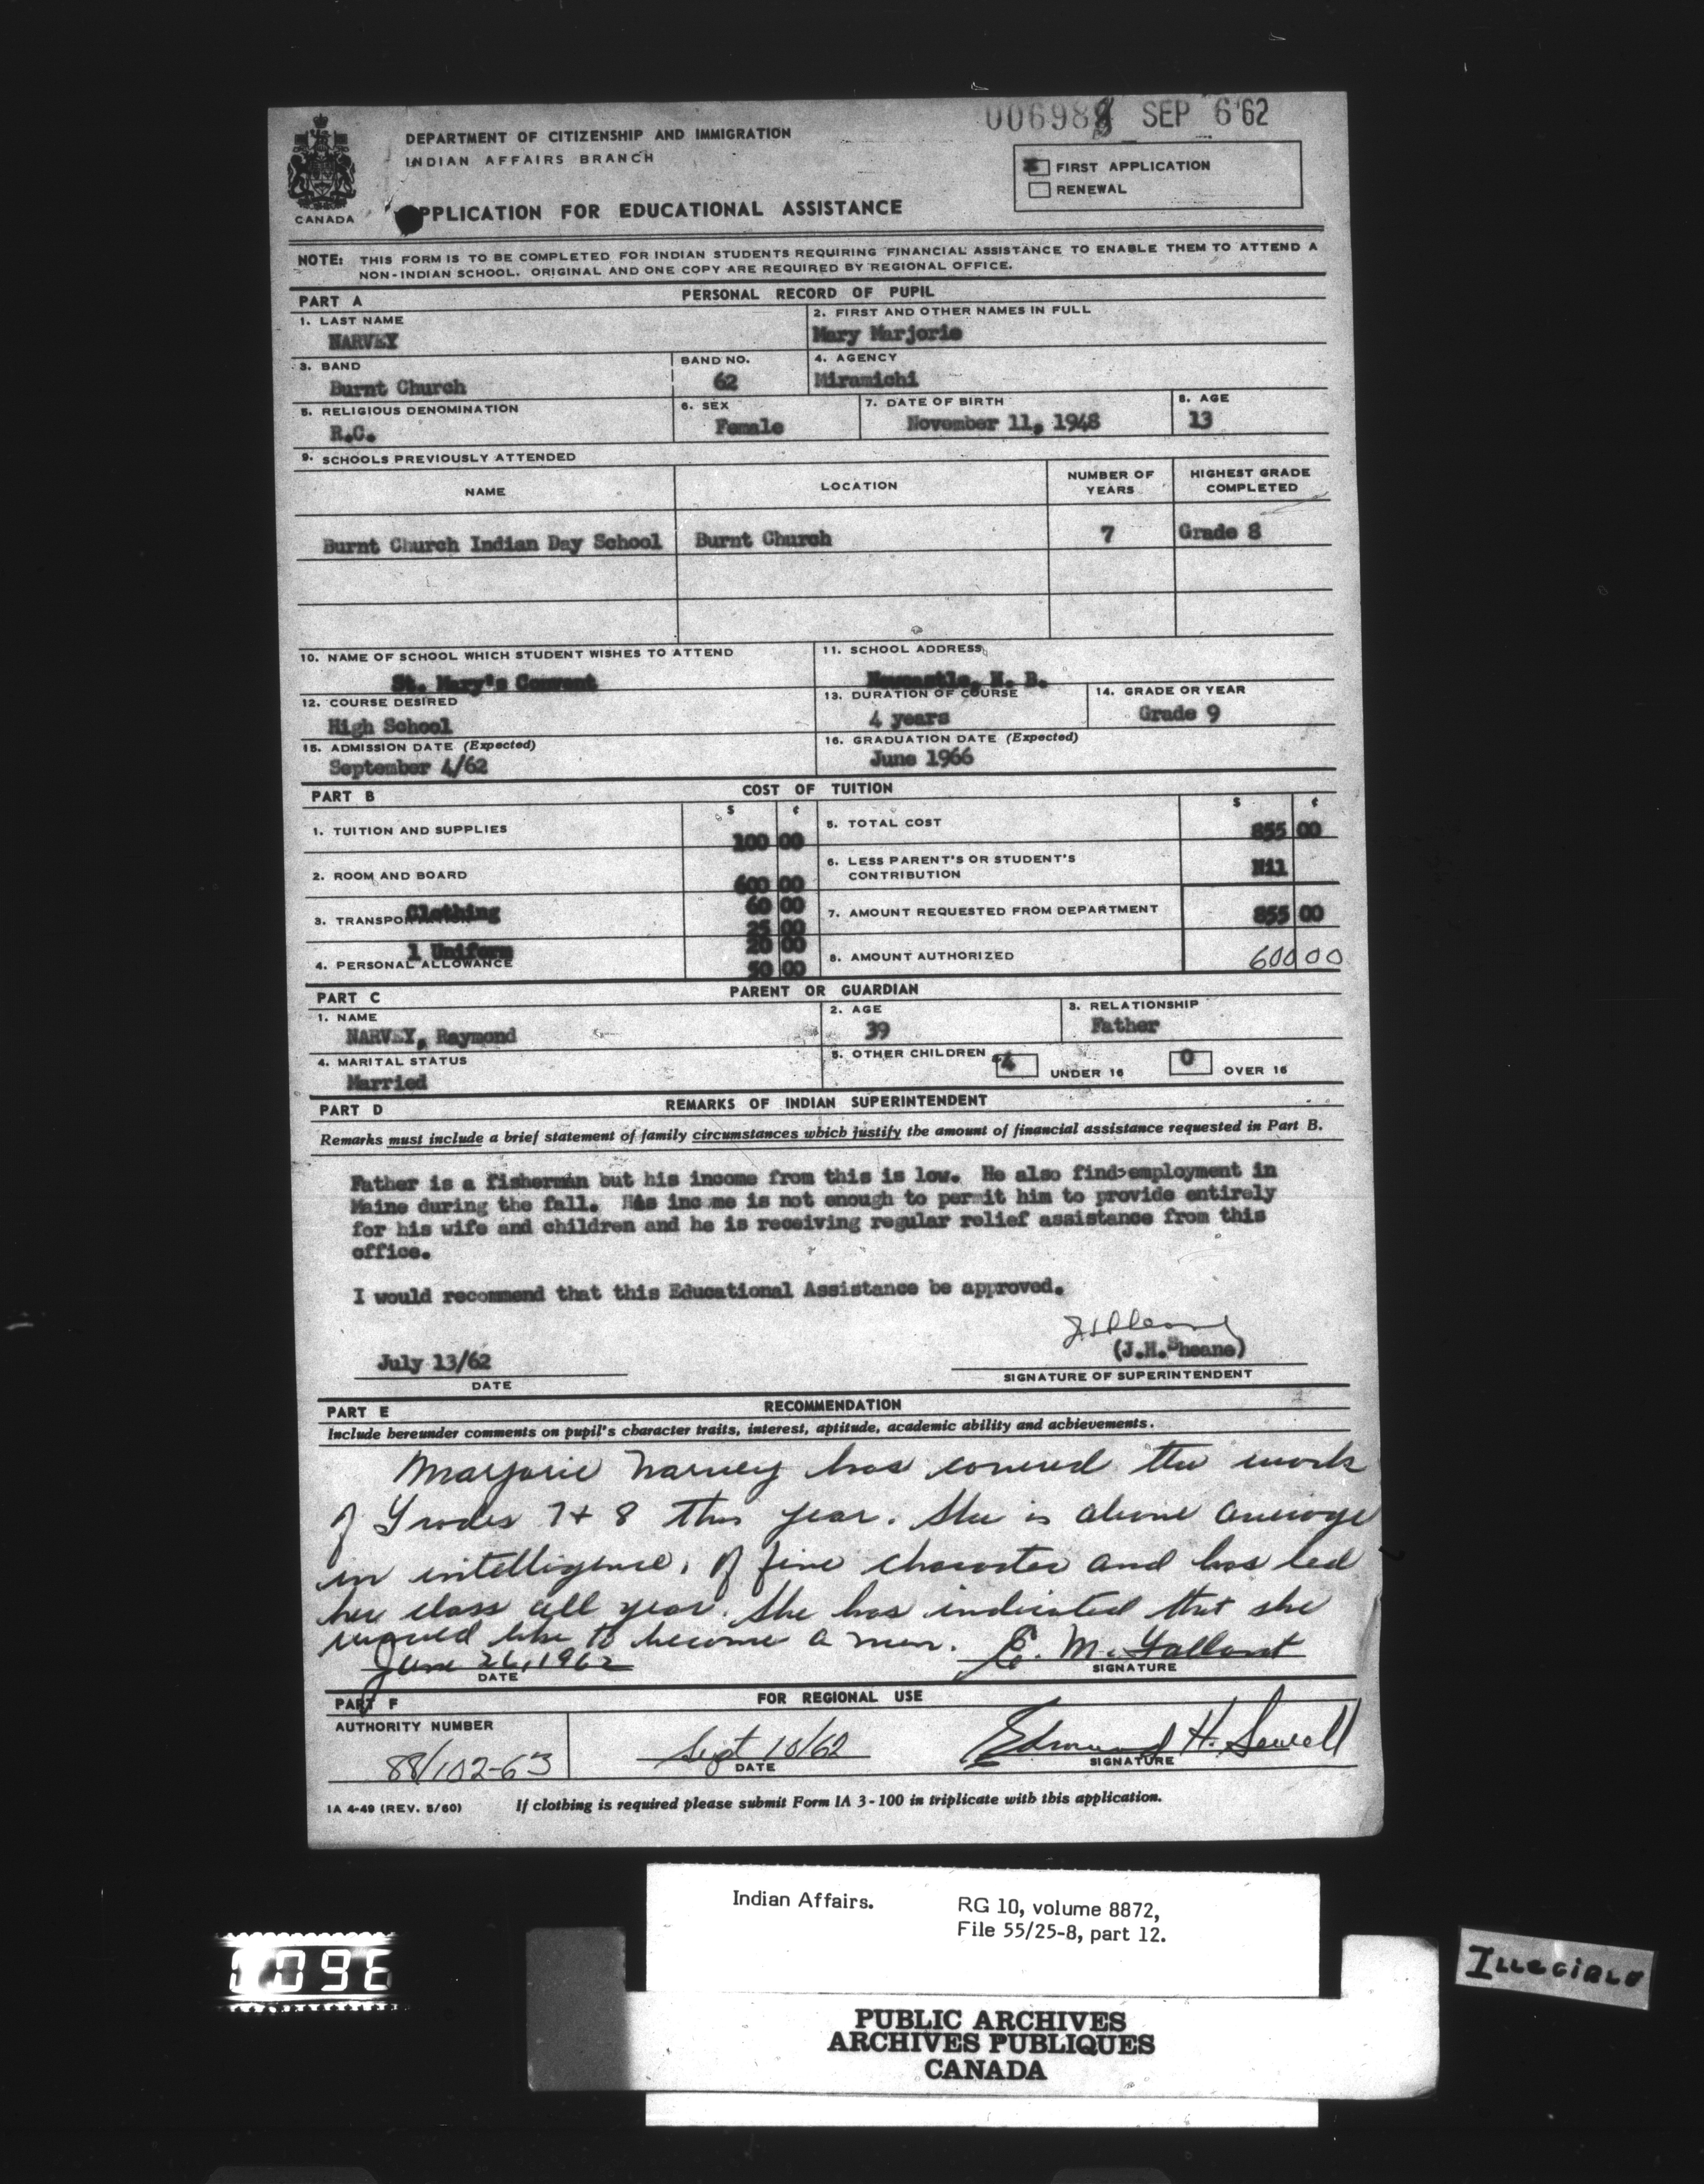 SEP 6 '62
DEPARTMENT OF CITIZENSHIP AND IMMIGRATION
INDIAN AFFAIRS BRANCH
CANADA
APPLICATION FOR EDUCATIONAL ASSISTANCE
FIRST APPLICATION
RENEWAL
NOTE: THIS FORM IS TO BE COMPLETED FOR INDIAN STUDENTS REQUIRING FINANCIAL ASSISTANCE TO ENABLE THEM TO ATTEND A
NON-INDIAN SCHOOL. ORIGINAL AND ONE COPY ARE REQUIRED BY REGIONAL OFFICE.
PART A PERSONAL RECORD OF PUPIL
1. LAST NAME 2. FIRST AND OTHER NAMES IN FULL
NARVEY Mary Marjorie
3. BAND BAND NO. 4. AGENCY
Burnt Church 62 Miramichi
5. RELIGIOUS DENOMINATION 6. SEX 7. DATE OF BIRTH 8. AGE
R.C. Female November 11, 1948 13
9. SCHOOLS PREVIOUSLY ATTENDED
NAME LOCATION NUMBER OF YEARS HIGHEST GRADE COMPLETED
Burnt Church Indian Day School Burnt Church 7 Grade 8
10. NAME OF SCHOOL WHICH STUDENT WISHES TO ATTEND 11. SCHOOL ADDRESS
St. Mary's Convent Newcastle, N. B.
12. COURSE DESIRED 13. DURATION OF COURSE 14. GRADE OR YEAR
High School 4 years Grade 9
15. ADMISSION DATE (Expected) 16. GRADUATION DATE (Expected)
September 4/62 June 1966
PART B COST OF TUITION
$ ¢ $ ¢
1. TUITION AND SUPPLIES 100 00 5. TOTAL COST 855 00
2. ROOM AND BOARD 600 00 6. LESS PARENT'S OR STUDENT'S CONTRIBUTION Nil
Clothing 60 00
3. TRANSPORTATION 25 00 7. AMOUNT REQUESTED FROM DEPARTMENT 855 00
1 Uniform 20 00
4. PERSONAL ALLOWANCE 50 00 8. AMOUNT AUTHORIZED 600 00
PART C PARENT OR GUARDIAN
1. NAME 2. AGE 3. RELATIONSHIP
NARVEY, Raymond 39 Father
4. MARITAL STATUS 5. OTHER CHILDREN 4 UNDER 16 0 OVER 16
Married
PART D REMARKS OF INDIAN SUPERINTENDENT
Remarks must include a brief statement of family circumstances which justify the amount of financial assistance requested in Part B.
Father is a fisherman but his income from this is low. He also finds employment in
Maine during the fall. His income is not enough to permit him to provide entirely
for his wife and children and he is receiving regular relief assistance from this
office.
I would recommend that this Educational Assistance be approved.
July 13/62 (J.H. Sheane)
DATE SIGNATURE OF SUPERINTENDENT
PART E RECOMMENDATION
Include hereunder comments on pupil's character traits, interest, aptitude, academic ability and achievements.
Marjorie Narvey has covered the work
of Grades 7 + 8 this year. She is above average
in intelligence, of fine character and has led
her class all year. She has indicated that she
would like to become a nun. E. M. Gallant
June 26, 1962
DATE SIGNATURE
PART F FOR REGIONAL USE
AUTHORITY NUMBER
88/102-63 Sept 10/62 Edmund H. Sewell
DATE SIGNATURE
IA 4-49 (REV. 5/60) If clothing is required please submit Form IA 3-100 in triplicate with this application.
Indian Affairs. RG 10, volume 8872,
File 55/25-8, part 12.
Illegible
PUBLIC ARCHIVES
ARCHIVES PUBLIQUES
CANADA